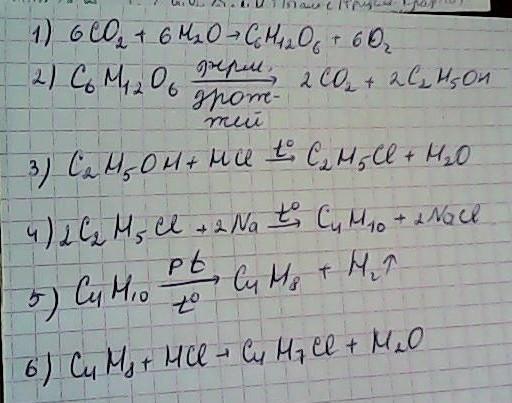 1) 6CO₂ + 6H₂O → C₆H₁₂O₆ + 6O₂
2) C₆H₁₂O₆ ферм. дрож-жей → 2CO₂ + 2C₂H₅OH
3) C₂H₅OH + HCl t° → C₂H₅Cl + H₂O
4) 2C₂H₅Cl + 2Na t° → C₄H₁₀ + 2NaCl
5) C₄H₁₀ Pt t° → C₄H₈ + H₂↑
6) C₄H₈ + HCl → C₄H₇Cl + H₂O